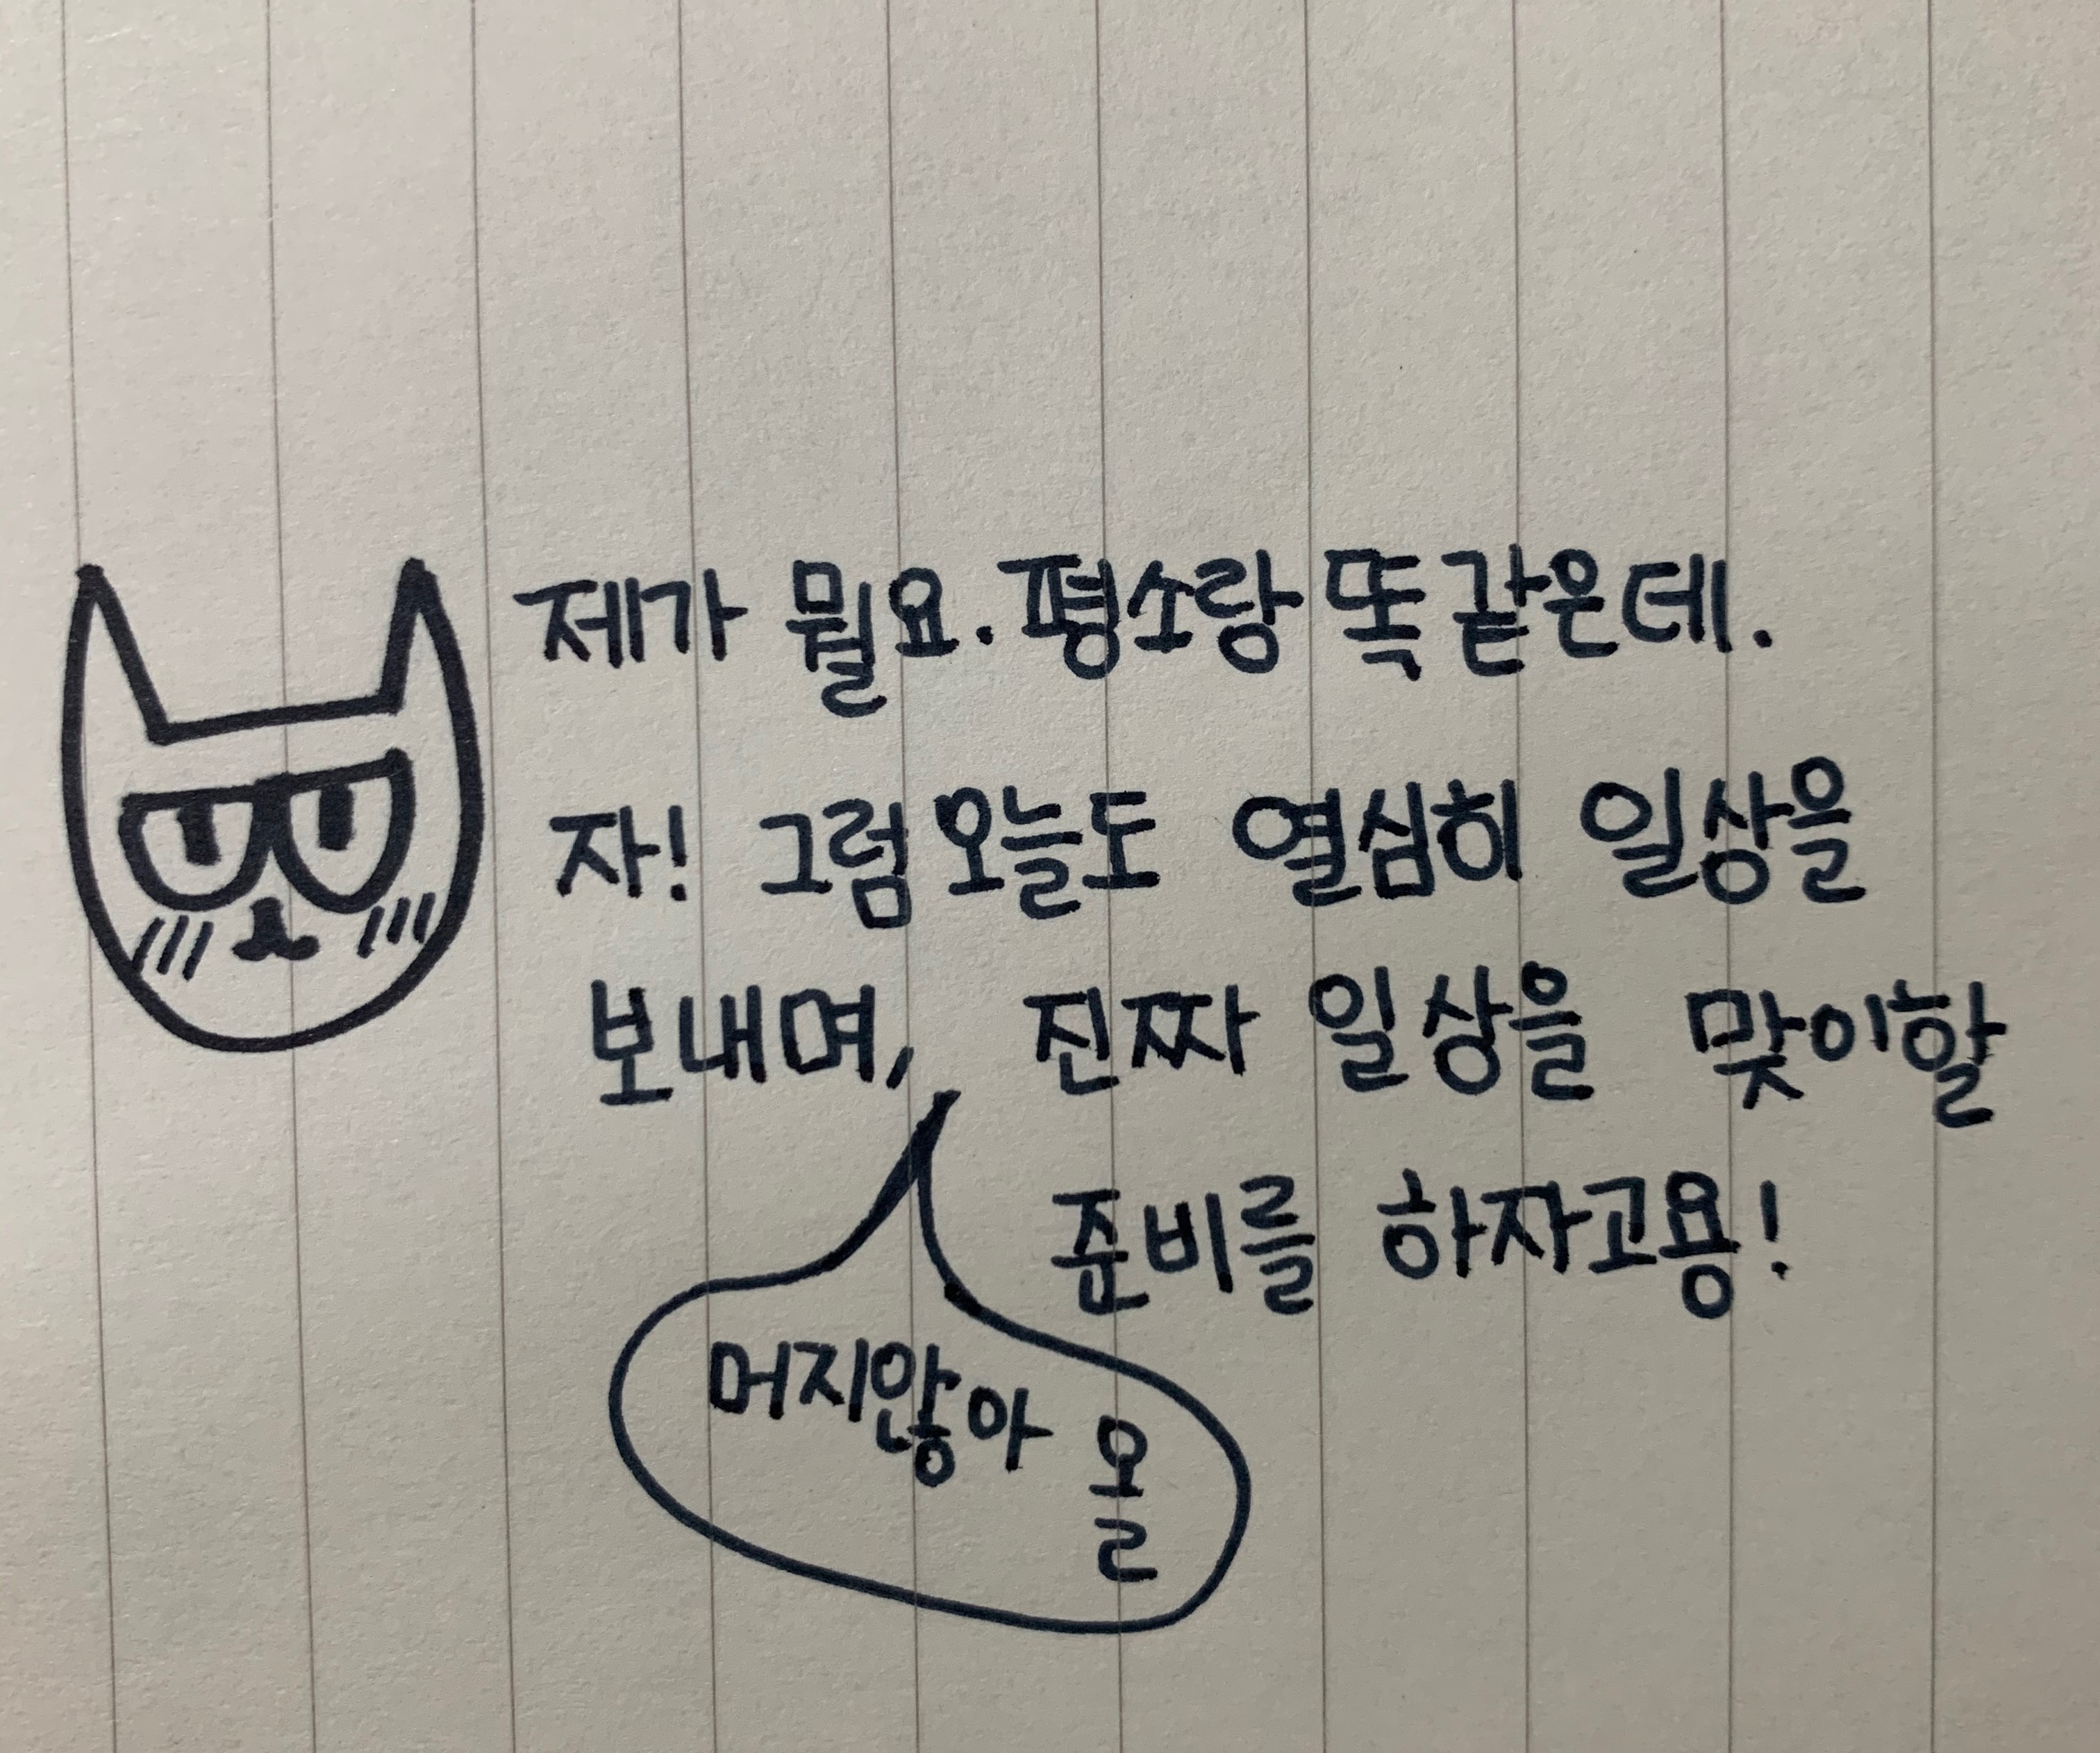 제가 뭘요. 평소랑 똑같은데.
자! 그럼 오늘도 열심히 일상을
보내며, 진짜 일상을 맞이할
준비를 하자고용!
머지않아 올